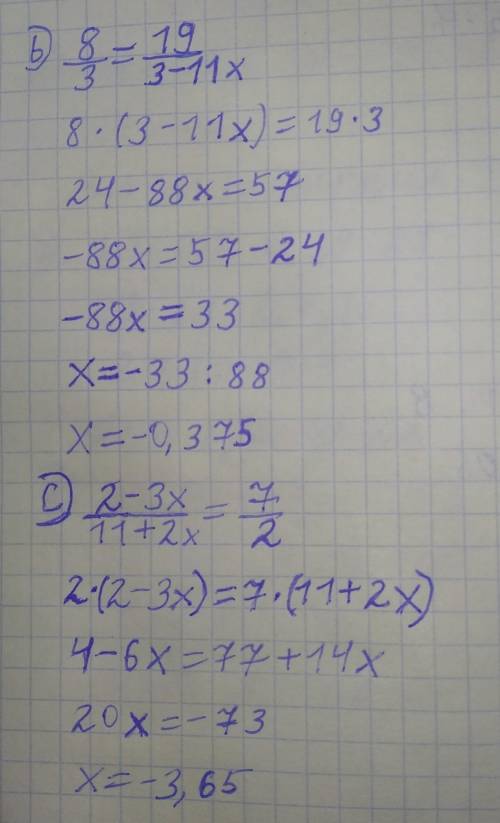 b) 8/3 = 19/(3-11x)
8·(3-11x)=19·3
24-88x=57
-88x=57-24
-88x=33
x=-33:88
x=-0,375
c) (2-3x)/(11+2x) = 7/2
2·(2-3x)=7·(11+2x)
4-6x=77+14x
20x=-73
x=-3,65